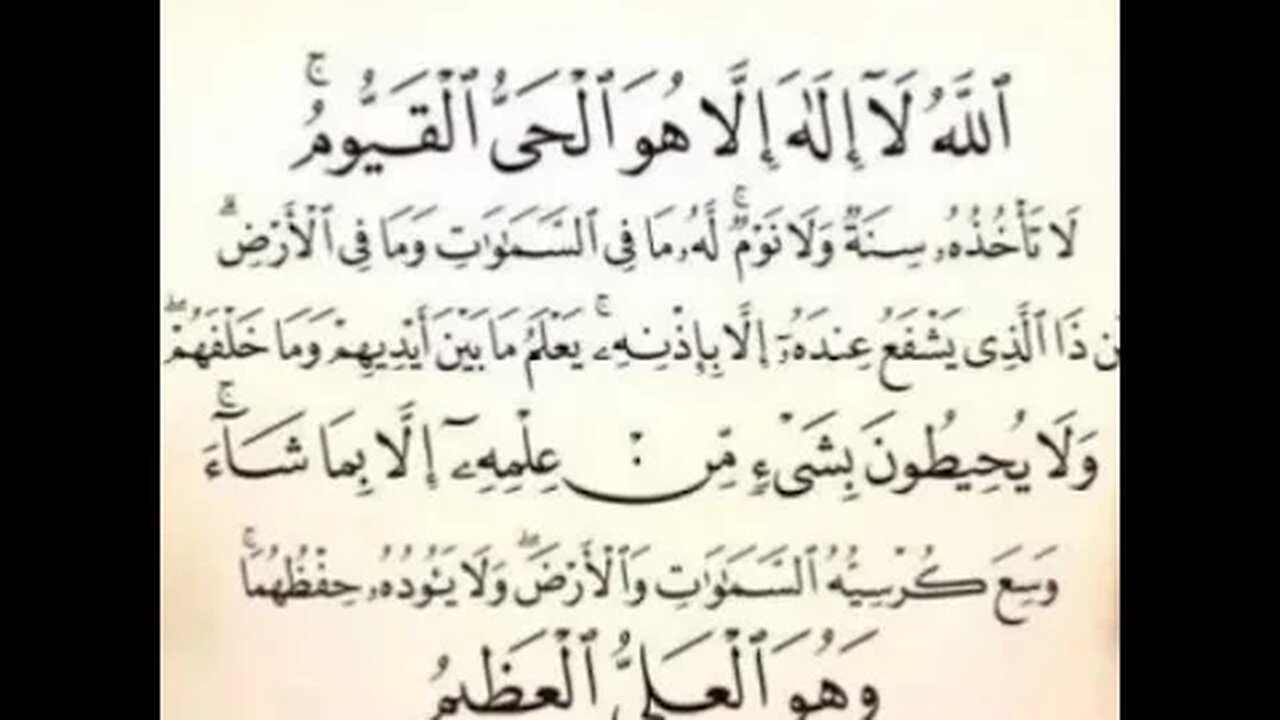 ٱللَّهُ لَآ إِلَٰهَ إِلَّا هُوَ ٱلْحَىُّ ٱلْقَيُّومُ ۚ
لَا تَأْخُذُهُۥ سِنَةٌ وَلَا نَوْمٌ ۚ لَّهُۥ مَا فِى ٱلسَّمَٰوَٰتِ وَمَا فِى ٱلْأَرْضِ ۗ
ذَا ٱلَّذِى يَشْفَعُ عِندَهُۥٓ إِلَّا بِإِذْنِهِۦ ۚ يَعْلَمُ مَا بَيْنَ أَيْدِيهِمْ وَمَا خَلْفَهُمْ ۖ
وَلَا يُحِيطُونَ بِشَىْءٍ مِّنْ عِلْمِهِۦٓ إِلَّا بِمَا شَآءَ ۚ
وَسِعَ كُرْسِيُّهُ ٱلسَّمَٰوَٰتِ وَٱلْأَرْضَ ۖ وَلَا يَـُٔودُهُۥ حِفْظُهُمَا ۚ
وَهُوَ ٱلْعَلِىُّ ٱلْعَظِيمُ